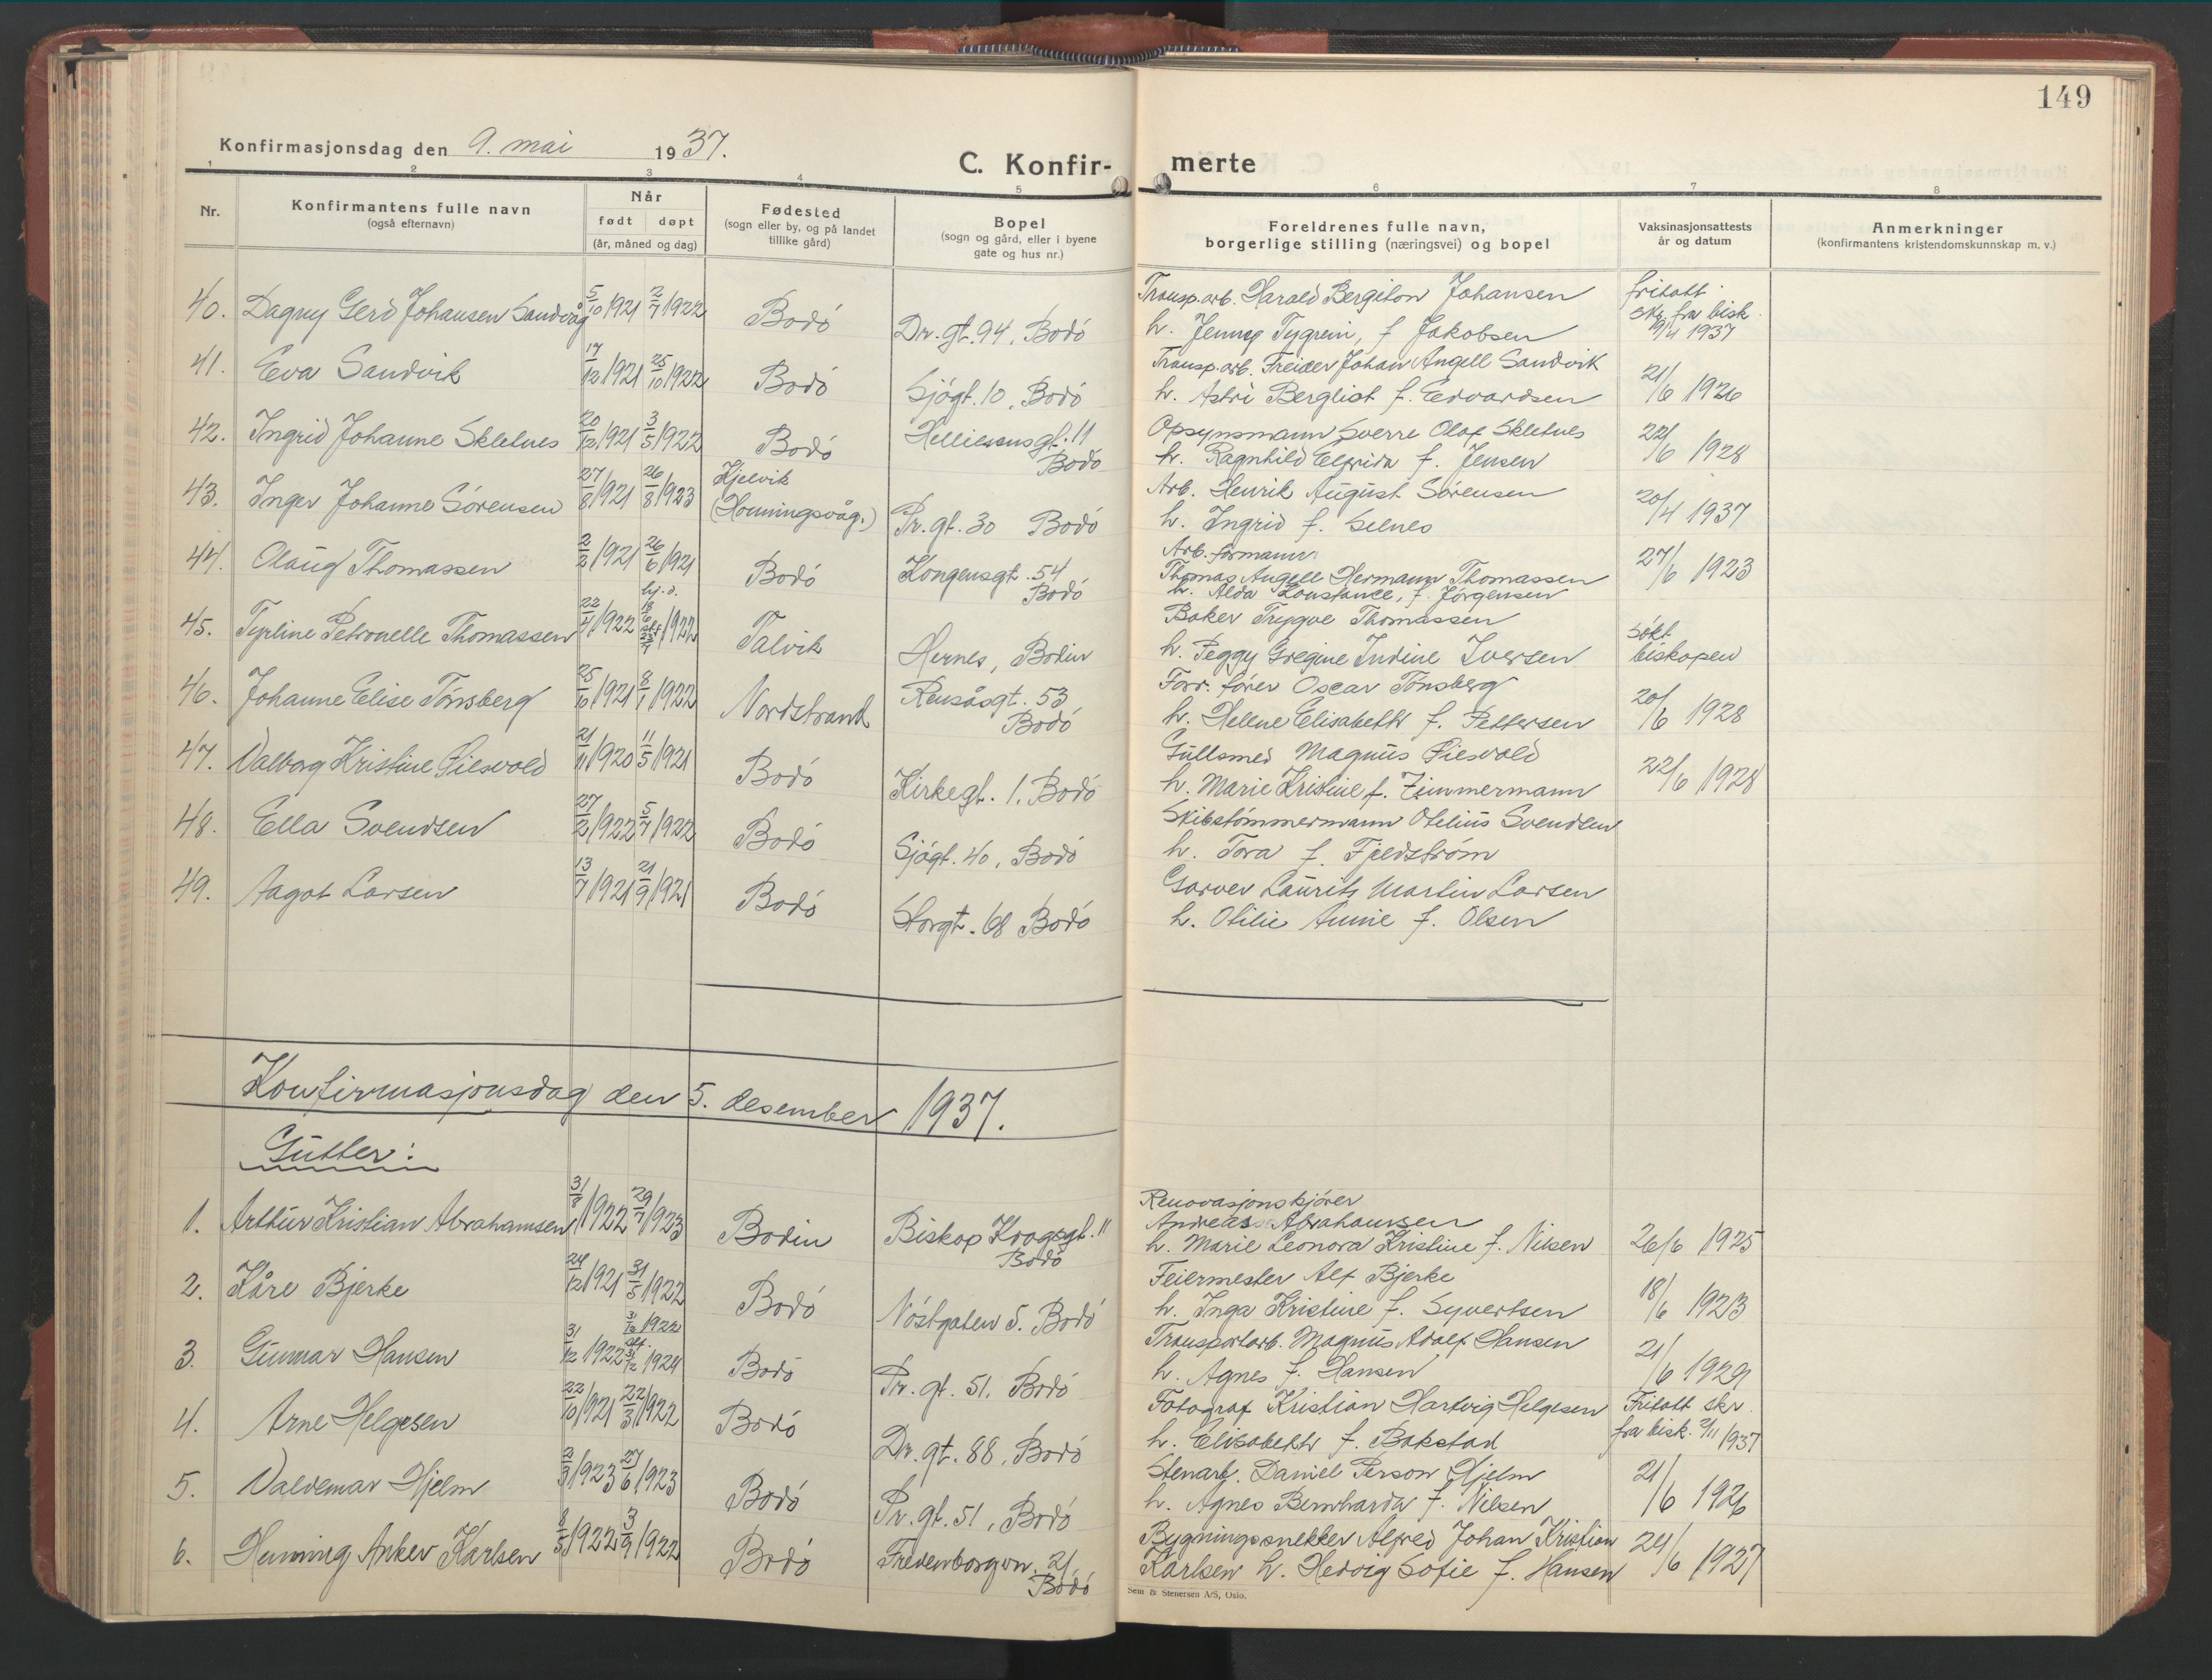 149
Konfirmasjonsdag den 9. mai 1937.
C. Konfir- merte
1 2 3 4 5 6 7 8
Nr.
Konfirmantens fulle navn
(også efternavn)
Når
født døpt
(år, måned og dag)
Fødested
(sogn eller by, og på landet
tillike gård)
Bopel
(sogn og gård, eller i byene
gate og hus nr.)
Foreldrenes fulle navn,
borgerlige stilling (næringsvei) og bopel
Vaksinasjonsattests
år og datum
Anmerkninger
(konfirmantens kristendomskunnskap m. v.)
40. Dagny Gerd Johansen Sandvåg 5/10 1921 2/7 1922 Bodó Dr. gt. 94, Bodó
Transp. arb. Harald Bergiton Johansen
h. Jenny f. Jakobsen
fritatt skr. fra bisk 19/4 1937
41. Eva Sandvik 17/12 1921 25/10 1922 Bodó Sjógt. 10, Bodó
Transp. arb. Johan Angell Sandvik
h. Astri Bergliot f. Edvardsen
21/6 1926
42. Ingrid Johanne Skletnes 20/12 1921 3/5 1922 Bodó 11 Bodó
Opsynsmann Sverre Olaf Skletnes
h. Ragnhild Elfrida f. Jensen
22/6 1928
43. Inger Johanne Sórensen 27/8 1921 26/8 1923 Kjelvik (Honningsvåg.) Pr. gt. 30 Bodó
Arb. Henrik August Sórensen
h. Ingrid f. Selnes
20/4 1937
44. Olaug Thomassen 2/2 1921 26/6 1921 Bodó Kongensgt. 54 Bodó
Arb. formann
Thomas Angell Hermann Thomassen
h. Alda Konstance, f. Jórgensen
27/6 1923
45. Petronelle Thomassen 22/4 1922 hj. d. 1922 Talvik Hernes, Bodin
Baker Trygve Thomassen
h. Peggy Gregine Indine Iversen
sókt biskopen
46. Johanne Elise Tónsberg 25/10 1921 8/1 1922 Nordstrand Rensåsgt. 53 Bodó
Forr. fórer Oscar Tónsberg
h. Helene Elisabeth f. Pettersen
20/6 1928
47. Valborg Kristine 21/11 1920 11/5 1921 Bodó Kirkegt. 1. Bodó
Gullsmed Magnus
h. Marie Kristine f. Zimmermann
22/6 1928
48. Ella Svendsen 27/2 1922 5/7 1922 Bodó Sjógt. 40, Bodó
Skibstómmermann Otelius Svendsen
h. Tora f. Fjeldstróm
49. Aagot Larsen 13/7 1921 21/9 1921 Bodó Storgt. 68 Bodó
Garver Lauritz Martin Larsen
h. Otilie Annie f. Olsen
Konfirmasjonsdag den 5. desember 1937.
Gutter:
1. Arthur Kristian Abrahamsen 31/8 1922 29/7 1923 Bodin Biskop Krogsgt. 11 Bodó
Renovasjonskjórer
Andreas Abrahamsen
h. Marie Leonora Kristine f. Nilsen
26/6 1925
2. Kåre Bjerke 24/12 1921 31/5 1922 Bodó Nóstgaten 5. Bodó
Feiermester Alf Bjerke
h. Inga Kristine f. Syvertsen
18/6 1923
3. Gunnar Hansen 31/12 1922 31/12 1922 1924 Bodó Pr. gt. 51, Bodó
Transportarb. Magnus Adolf Hansen
h. Agnes f. Hansen
21/6 1929
4. Arne Helgesen 22/10 1921 22/3 1922 Bodó Dr. gt. 88, Bodó
Fotograf Kristian Hartvig Helgesen
h. Elisabeth f. Bakstad
Fritatt skr. fra bisk. 2/11 1937
5. Valdemar Hjelm 2/3 1923 27/6 1923 Bodó Pr. gt. 51, Bodó
Stenarb. Daniel Person Hjelm
h. Agnes Bernharda f. Nilsen
21/6 1926
6. Henning Anker Karlsen 8/5 1922 3/9 1922 Bodó Fredenborgvn. 21, Bodó
Bygningssnekker Alfred Johan Kristian
Karlsen h. Hedvig Sofie f. Hansen
24/6 1927
Sem & Stenersen A/S, Oslo.